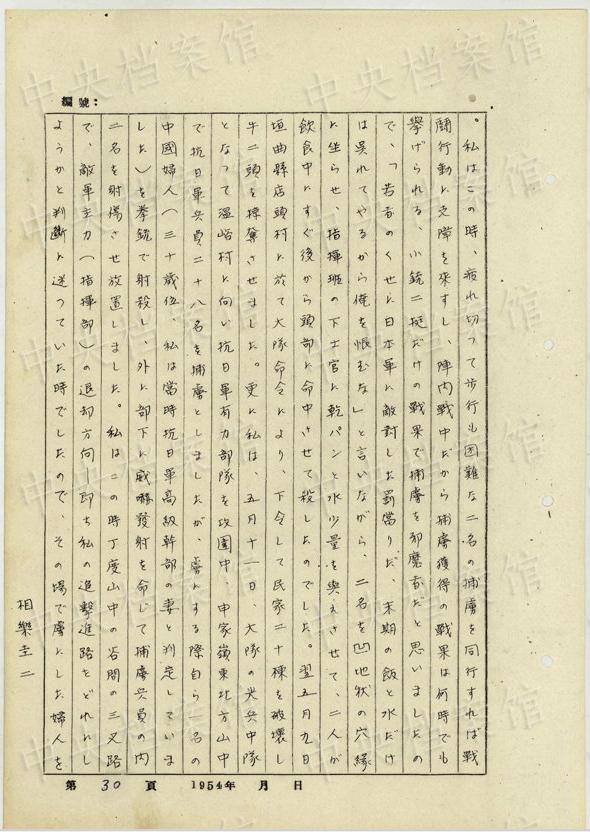 編號：
。私はこの時、疲れ切って歩行も困難な二名の捕虜を同行すれば戦
闘行動に支障を來すし、陣内戦中だから捕虜獲得の戦果は何時でも
挙げられる、小銃二挺だけの戦果で捕虜を邪魔者だと思いましたの
で、「若者のくせに日本軍に敵対した罰當りだ、末期の飯と水だけ
は呉れてやるから俺を恨むな」と言いながら、二名を凹地状の穴縁
に坐らせ、指揮班の下士官に乾パンと水少量を與えさせて、二人が
飲食中にすぐ後から頭部に命中させて殺したのでした。翌五月九日
垣曲縣店頭村に於て大隊命令により、下令して民家二十棟を破壊し
牛二頭を掠奪させました。更に私は、五月十一日、大隊の尖兵中隊
となって温峪村に向い抗日軍有力部隊を攻囲中、申家嶺東北方山中
で抗日軍兵員二十八名を捕虜としましたが、虜にする際自ら一名の
中國婦人（三十歳位、私は當時抗日軍高級幹部の妻と判定していま
した）を拳銃で射殺し、外に部下に威嚇發射を命じて捕虜兵員の内
二名を射傷させ放置しました。私はこの時丁度山中の谷間の三叉路
で、敵軍主力（指揮部）の退却方向－即ち私の追撃進路をどれにし
ようかと判断に迷っていた時でしたので、その場で虜にした婦人を
相樂圭二
第 30 頁 1954年 月 日
中央档案馆